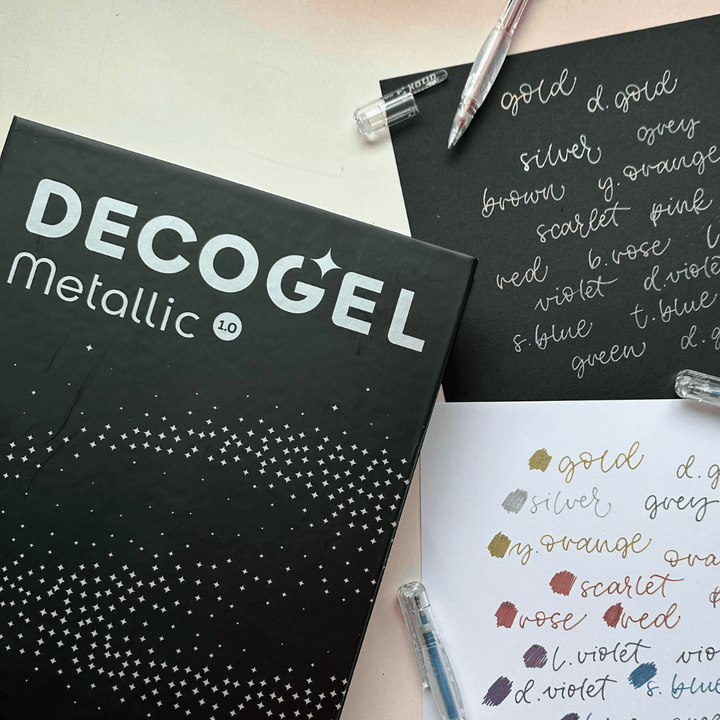 DECOGEL
Metallic 1.0
gold d.gold
silver grey
brown y.orange
scarlet pink
red b.rose
violet d.viole
s.blue t.blue
green d.g
gold d.g
silver grey
y.orange ora
scarlet
rose red
l.violet vio
d.violet s.blu